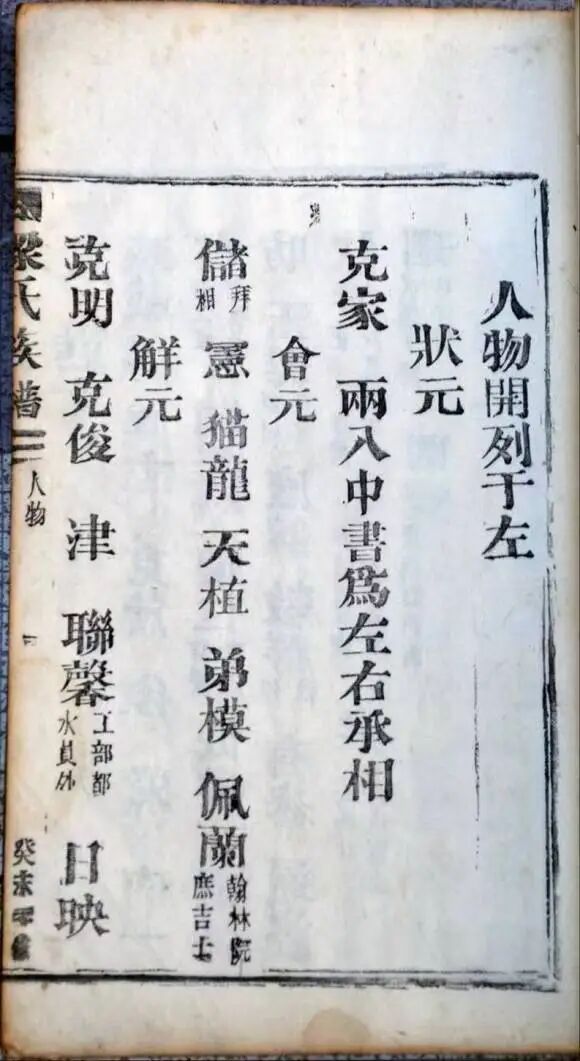 人物開列于左
狀元
克家 兩入中書爲左右承相
會元
儲 拜相 憲 猫龍 天植 弟模 佩蘭 翰林院庶吉士
觧元
克明 克俊 津 聯馨 工部都水員外 日映
梁氏族譜 人物 癸未